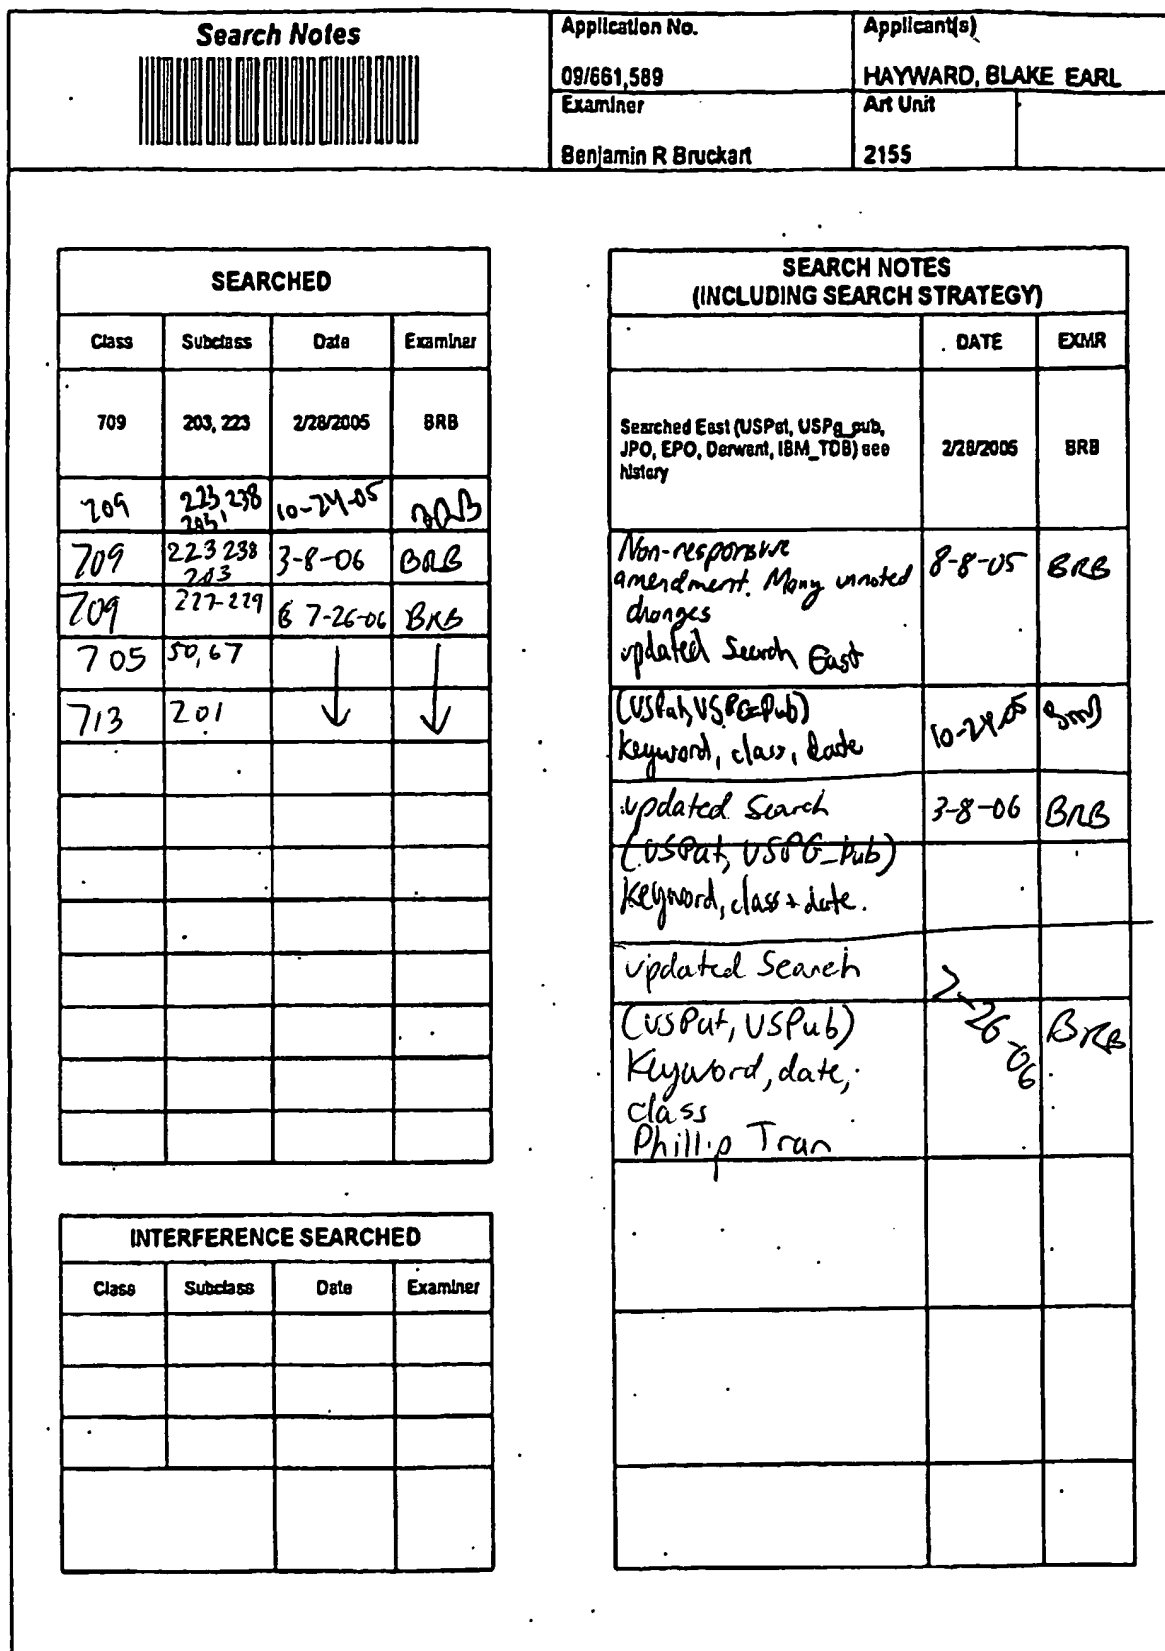 Search Notes
Application No.
09/661,589
Applicant(s)
HAYWARD, BLAKE EARL
Examiner
Benjamin R Bruckart
Art Unit
2155
SEARCHED
Class Subclass Date Examiner
709 203, 223 2/28/2005 BRB
709 223, 238 10-24-05 BRB
709 223 238 3-8-06 BRB
203
709 227-229 7-26-06 BRB
705 50, 67
713 201
INTERFERENCE SEARCHED
Class Subclass Date Examiner
SEARCH NOTES
(INCLUDING SEARCH STRATEGY)
DATE EXMR
Searched East (USPat, USPg_pub,
JPO, EPO, Derwent, IBM_TDB) see
history
2/28/2005 BRB
Non-responsive
amendment. Many unnoted
changes
8-8-05 BRB
updated Search East
(USPat, USPG-Pub)
keyword, class, date
10-24-05 BRB
updated Search
3-8-06 BRB
(USPat, USPG_Pub)
Keyword, class + date.
updated Search
(USPat, USPub)
7-26-06 BRB
Keyword, date,
class
Phillip Tran